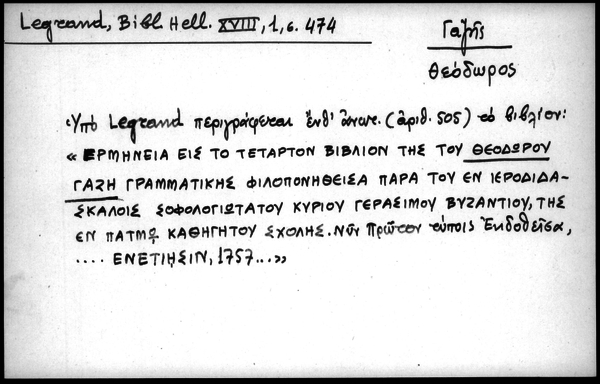 Legrand, Bibl. Hell. XVIII, 1, σ. 474
Γαζῆς
Θεόδωρος
Ὑπὸ Legrand περιγράφεται ἔνθ' ἀνωτ. (ἀριθ. 505) τὸ βιβλίον:
« ΕΡΜΗΝΕΙΑ ΕΙΣ ΤΟ ΤΕΤΑΡΤΟΝ ΒΙΒΛΙΟΝ ΤΗΣ ΤΟΥ ΘΕΟΔΩΡΟΥ
ΓΑΖΗ ΓΡΑΜΜΑΤΙΚΗΣ ΦΙΛΟΠΟΝΗΘΕΙΣΑ ΠΑΡΑ ΤΟΥ ΕΝ ΙΕΡΟΔΙΔΑ-
ΣΚΑΛΟΙΣ ΣΟΦΟΛΟΓΙΩΤΑΤΟΥ ΚΥΡΙΟΥ ΓΕΡΑΣΙΜΟΥ ΒΥΖΑΝΤΙΟΥ, ΤΗΣ
ΕΝ ΠΑΤΜῼ ΚΑΘΗΓΗΤΟΥ ΣΧΟΛΗΣ. Νῦν Πρῶτον τύποις Ἐκδοθεῖσα,
.... ΕΝΕΤΙΗΣΙΝ, 1757...»